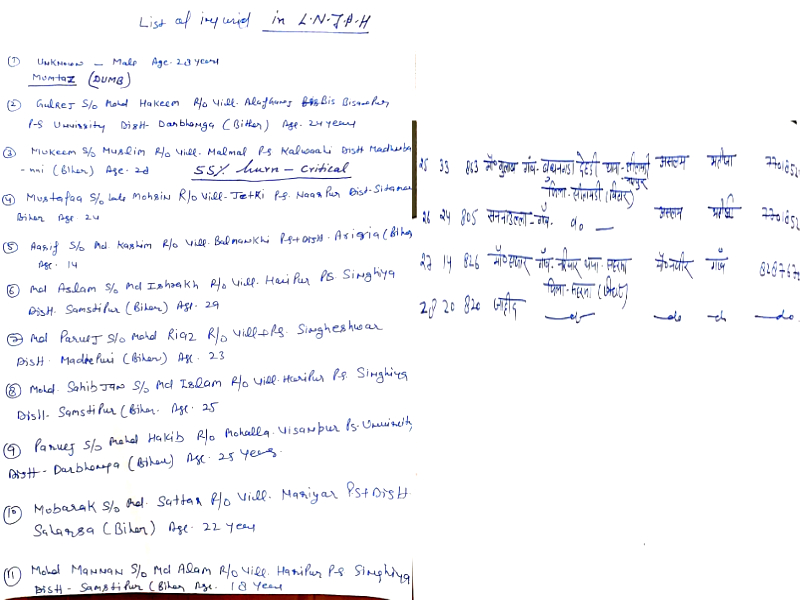 List of injured in L.N.J.P.H
① Unknown – Male Age. 28 years
Mumtaz (DUMB)
② Gulrej S/o Mohd Hakeem R/o Vill. Bis
P-S University Distt Darbhanga (Bither) Age. 24 years
③ Mukeem S/o Muslim R/o Vill. Malmal P.S Kalwaahi Distt Madhuba
-nni (Biher) Age. 28 55% burn - Critical
④ Mustafaa S/o late Mohsin R/o Vill- P.S. Naanpur Dist- Sitama
Biher Age 24
⑤ Aasif S/o Md. Kashim R/o Vill. P.S+Distt. Arigria (Biher
Age. 14
⑥ Md Aslam S/o Md R/o Vill. Haripur P.S Singhiya
Distt. Samstipur (Biher) Age. 29
⑦ Md Parvej S/o Mohd Riaz R/o Vill+P.S. Singheshwar
Distt. Madhepuri (Biher) Age. 23
⑧ Mohd. Sahib JAN S/o Md Islam R/o Vill. Haripur P.S Singhiya
Distt- Samstipur (Biher. Age. 25
⑨ Parvej S/o Mohd Hakib R/o Mohalla. Visanpur P.S. University
Distt- Darbhanga (Biher) Age. 25 years.
⑩ Mobarak S/o Md. Sattar R/o Vill. Nariyar P.S+Distt
Saharsa (Biher) Age. 22 year
⑪ Mohd Mannan S/o Md Alam R/o Vill. Haripur P-S Singhiya
Distt- Samstipur (Biher Age. 18 year
25 33 863 मो० गांव- थाना-
जिला- (बिहार) 7701852
26 24 805 गाँव- do 770185
27 14 826 मो० गाँव- नरियार थाना सहरसा मो० गाँव 828767
जिला- सहरसा (बिहार)
28 20 820 जाहीद do do do